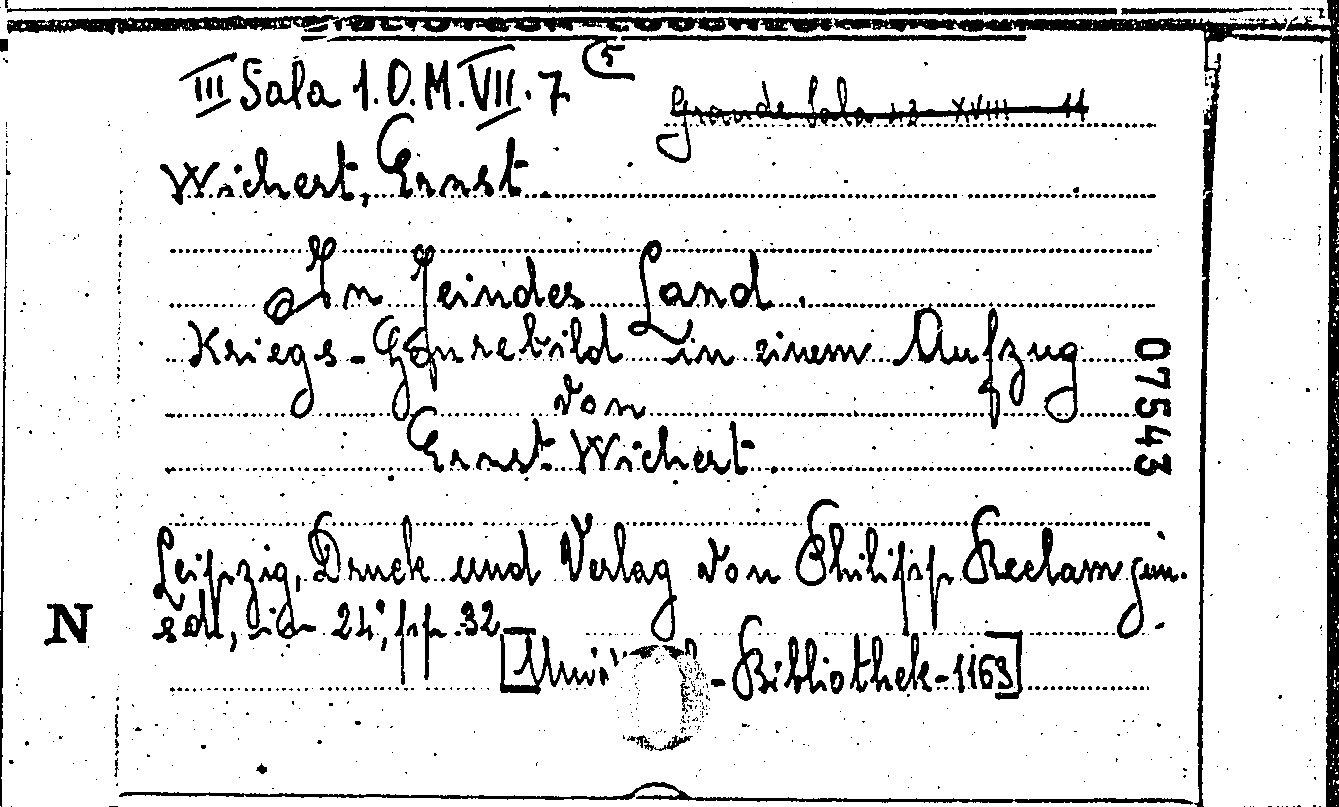 III Sala 1.O.M.VII.7 (5
Grande Sala 42 XVIII 11
Wichert, Ernst.
In Feindes Land.
Kriegs-Genrebild in einem Aufzug
von
Ernst Wichert.
Leipzig, Druck und Verlag von Philipp Reclam jun.
sdt, in 24°, pp. 32
-Bibliothek-1169]
N
07543